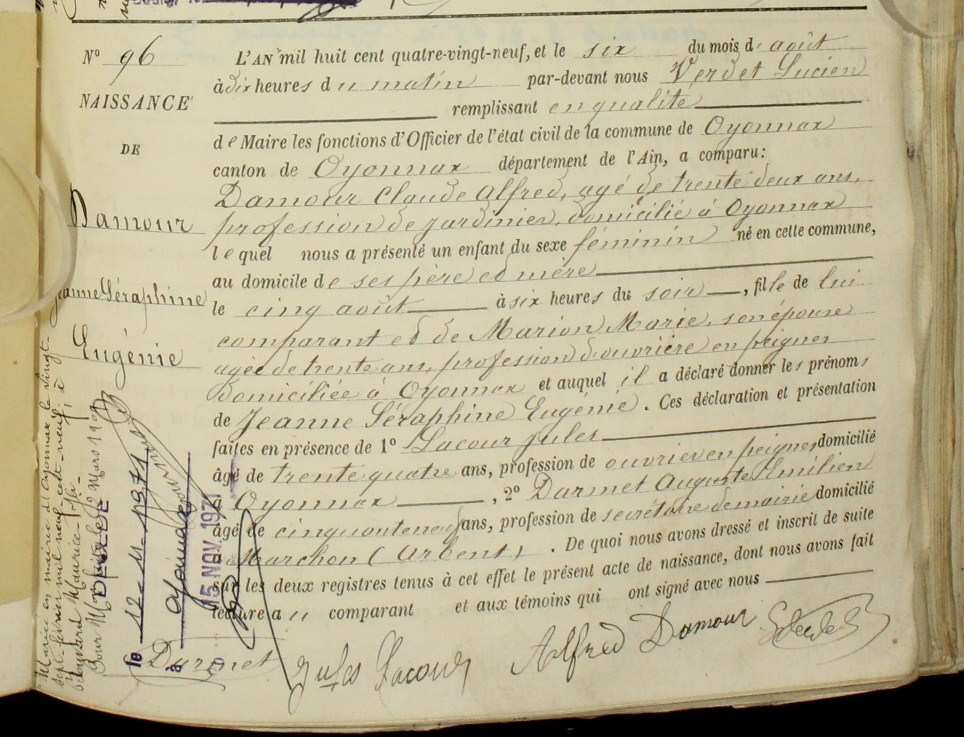 N° 96
NAISSANCE
DE
Damour
Jeanne Séraphine
Eugénie
L'AN mil huit cent quatre-vingt-neuf, et le six du mois d'août
à dix heures du matin par-devant nous Verdet Lucien
remplissant en qualité
de Maire les fonctions d'Officier de l'état civil de la commune de Oyonnax
canton de Oyonnax département de l'Ain, a comparu:
Damour Claude Alfred, agé de trente deux ans,
profession de jardinier, domicilié à Oyonnax
lequel nous a présenté un enfant du sexe féminin né en cette commune,
au domicile de ses père et mère
le cinq août à six heures du soir, fille de lui
comparant et de Marion Marie, son épouse
agée de trente ans, profession d'ouvrière en peignes
domiciliée à Oyonnax et auquel il a déclaré donner les prénoms
de Jeanne Séraphine Eugénie. Ces déclaration et présentation
faites en présence de 1° Lacour Jules
âgé de trente quatre ans, profession de ouvrier en peignes domicilié
à Oyonnax, 2° Darmet Auguste Emilien
âgé de cinquante neuf ans, profession de secrétaire de mairie domicilié
à Marchon (Arbent). De quoi nous avons dressé et inscrit de suite
sur les deux registres tenus à cet effet le présent acte de naissance, dont nous avons fait
lecture au comparant et aux témoins qui ont signé avec nous
Darmet Jules Lacour Alfred Damour
Mariée en mairie d'Oyonnax le vingt
sept février mil neuf cent neuf, à
Maurice
Mars 1909
DÉCÉDÉE
le 12-11-1971
à
15 NOV. 1971